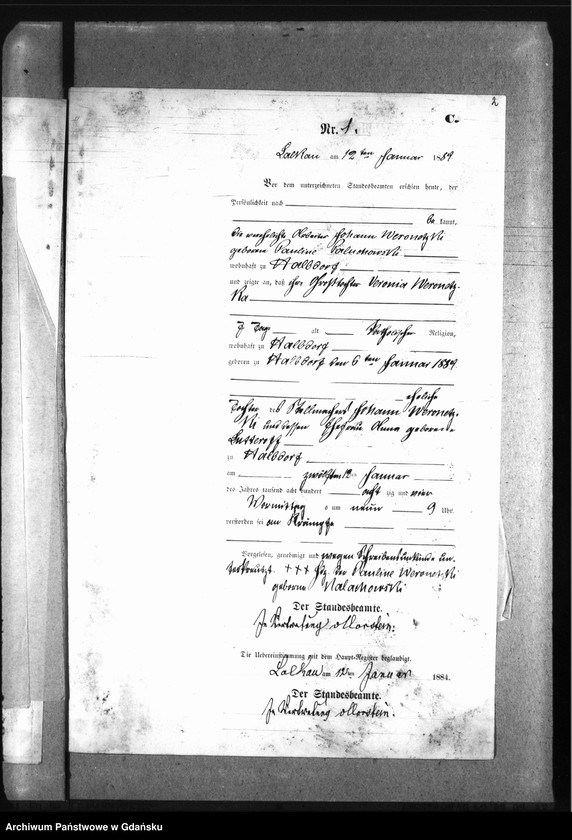 2
C.
Nr. 1.
Lalkau am 12ten Januar 1884
Vor dem unterzeichneten Standesbeamten erschien heute, der
Persönlichkeit nach
be kannt,
die verehelichte Arbeiter Johann Weronetzki
geborene Pauline
wohnhaft zu Halbdorf
und zeigte an, daß ihre Großtochter Veronia Weronetz-
ka
7 Tage alt katholischer Religion,
wohnhaft zu Halbdorf
geboren zu Halbdorf den 6ten Januar 1884
eheliche
Tochter des Stellmachers Johann Weronetz-
ki und dessen Ehefrau Anna geborene
zu Halbdorf
am zwölften 12ten Januar
des Jahres tausend acht hundert acht zig und vier
Vormittag s um neun 9 Uhr
verstorben sei an Krämpfe
Vorgelesen, genehmigt und wegen Schreibensunkunde un-
terkreuzt +++ Hz. der Pauline Weronetzki
geborene Malachowski
Der Standesbeamte.
In Vertretung
Die Uebereinstimmung mit dem Haupt-Register beglaubigt.
Lalkau am 12ten Januar 1884.
Der Standesbeamte.
In Vertretung
Archiwum Państwowe w Gdańsku